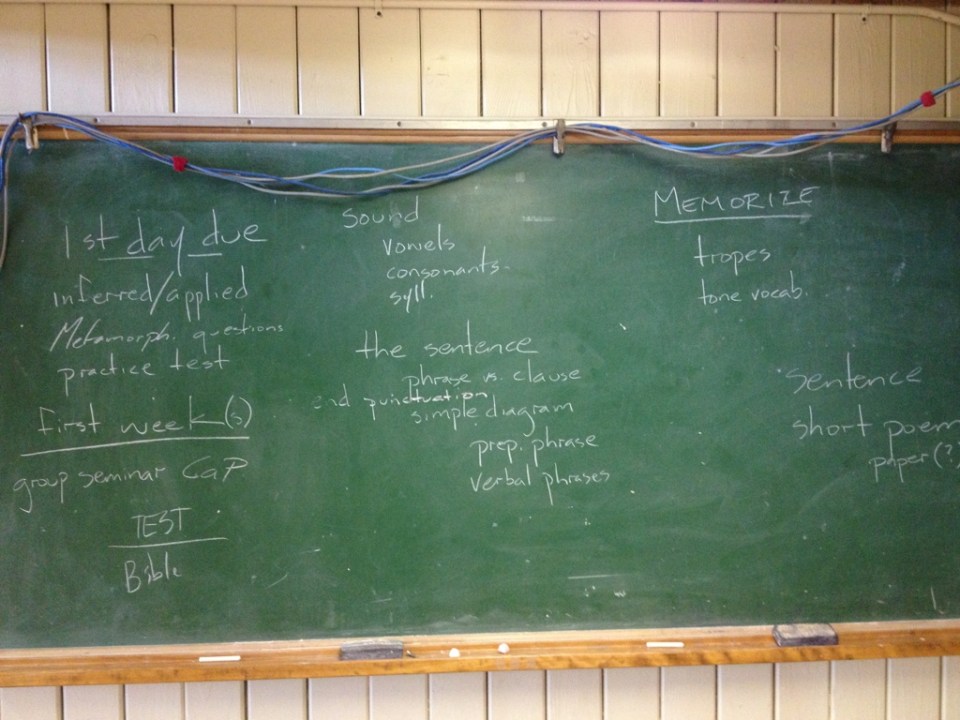 1st day due
inferred/applied
Metamorph. questions
practice test
first week(s)
group seminar CaP
TEST
Bible
Sound
vowels
consonants.
syll.
the sentence
phrase vs. clause
end punctuation
simple diagram
prep. phrase
verbal phrases
MEMORIZE
tropes
tone vocab.
sentence
short poem
paper (?)